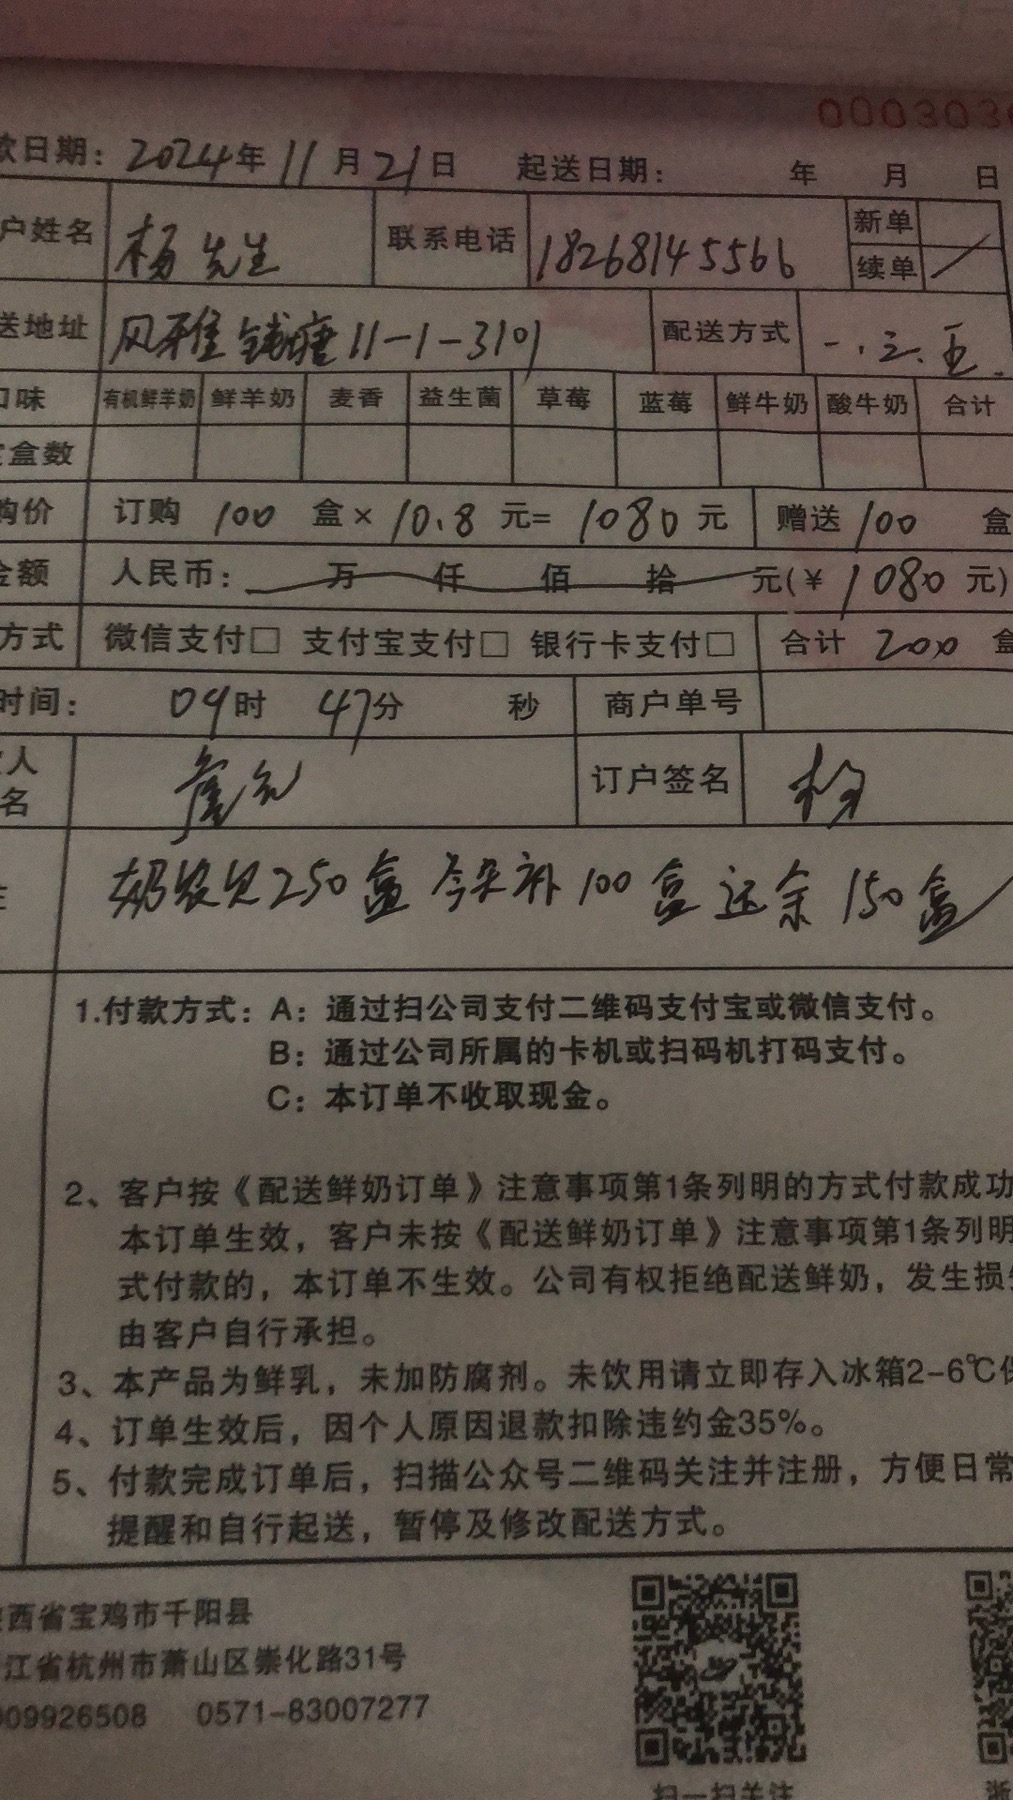 000303
款日期：2024年11月21日 起送日期： 年 月 日
户姓名 杨先生 联系电话 18268145566 新单
续单 /
送地址 风雅钱塘11-1-3101 配送方式 一.三.五.
口味 有机鲜羊奶 鲜羊奶 麦香 益生菌 草莓 蓝莓 鲜牛奶 酸牛奶 合计
盒数
购价 订购 100 盒× 10.8 元= 1080 元 赠送 100 盒
金额 人民币： 万 仟 佰 拾 元(¥ 1080 元)
方式 微信支付□ 支付宝支付□ 银行卡支付□ 合计 200 盒
时间： 09时 47分 秒 商户单号
人
名 订户签名 杨
250盒 今天补100盒 还余150盒
1.付款方式：A：通过扫公司支付二维码支付宝或微信支付。
B：通过公司所属的卡机或扫码机打码支付。
C：本订单不收取现金。
2、客户按《配送鲜奶订单》注意事项第1条列明的方式付款成功
本订单生效，客户未按《配送鲜奶订单》注意事项第1条列明
式付款的，本订单不生效。公司有权拒绝配送鲜奶，发生损失
由客户自行承担。
3、本产品为鲜乳，未加防腐剂。未饮用请立即存入冰箱2-6℃保
4、订单生效后，因个人原因退款扣除违约金35%。
5、付款完成订单后，扫描公众号二维码关注并注册，方便日常
提醒和自行起送，暂停及修改配送方式。
西省宝鸡市千阳县
江省杭州市萧山区崇化路31号
09926508 0571-83007277
扫一扫关注
浙